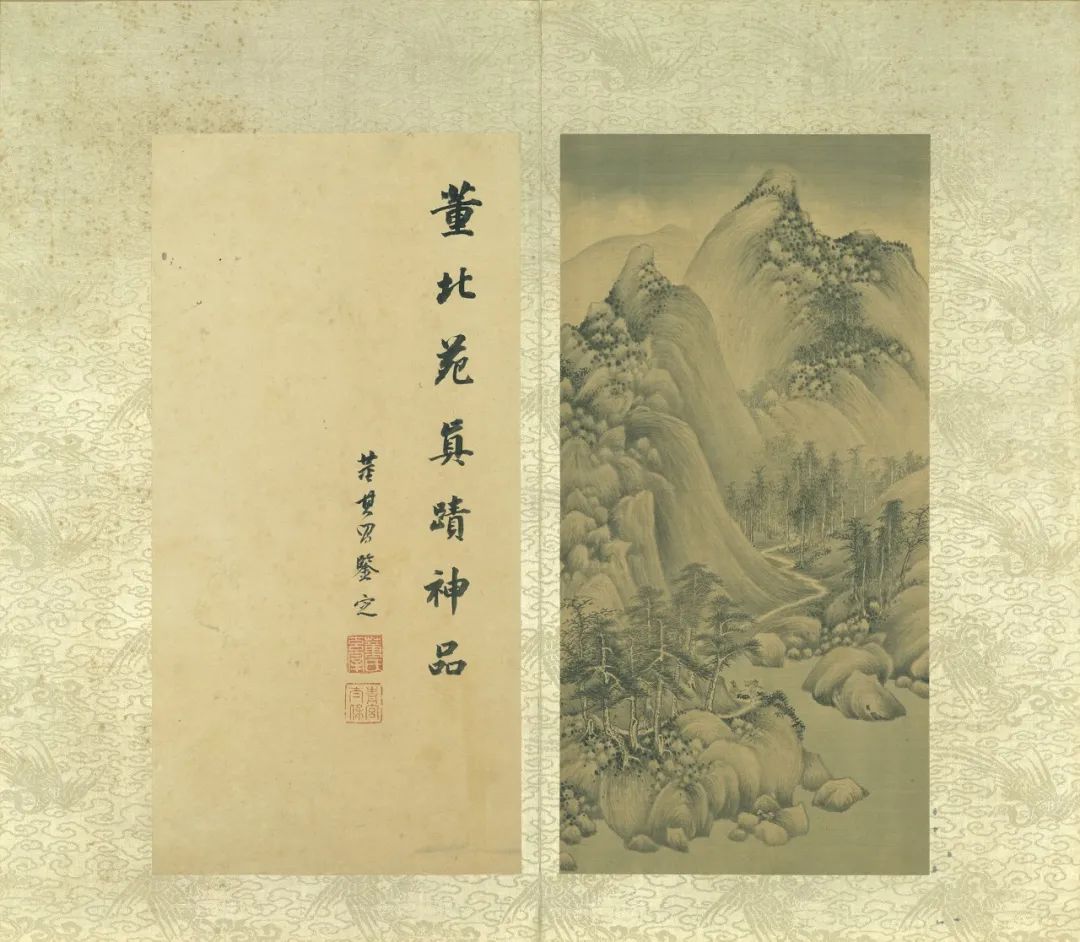 董北苑真蹟神品
董其昌鑒定